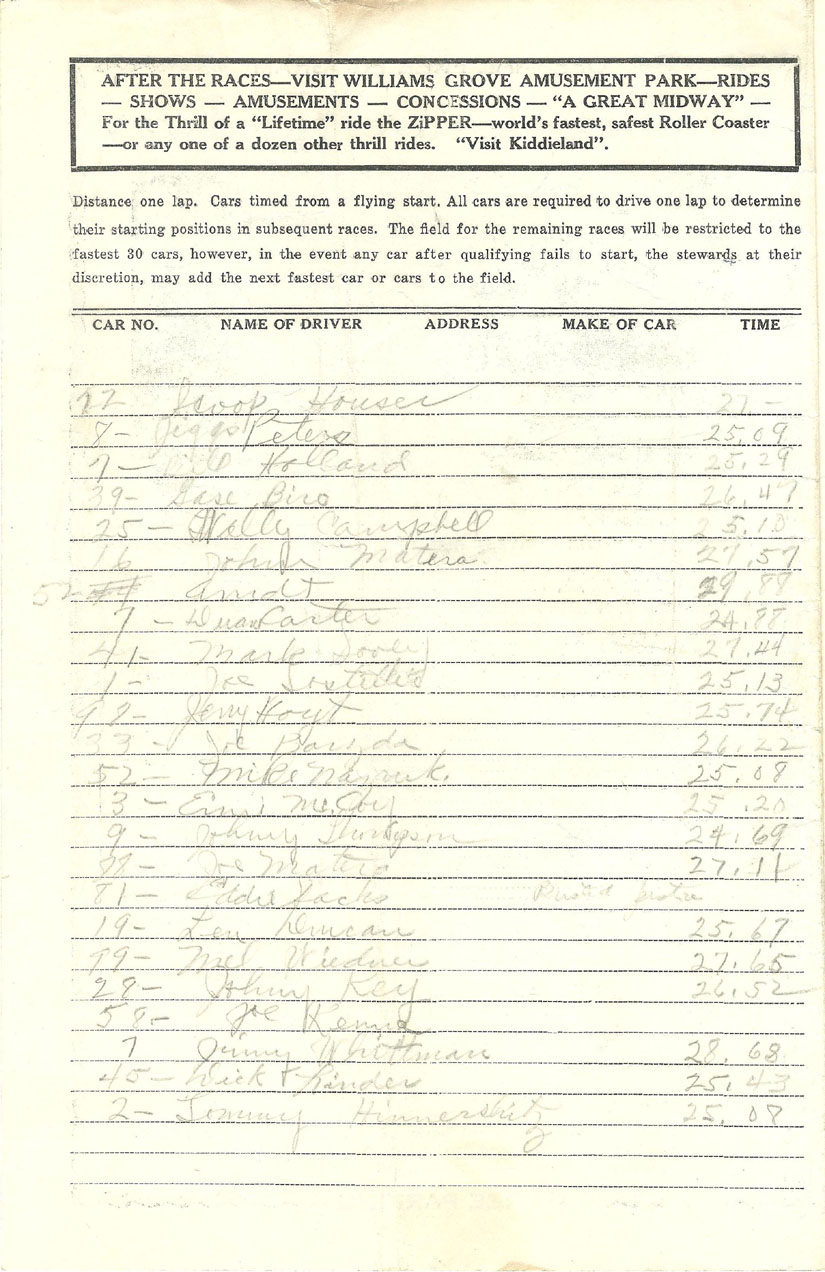 AFTER THE RACES—VISIT WILLIAMS GROVE AMUSEMENT PARK—RIDES
— SHOWS — AMUSEMENTS — CONCESSIONS — "A GREAT MIDWAY" —
For the Thrill of a "Lifetime" ride the ZiPPER—world's fastest, safest Roller Coaster
—or any one of a dozen other thrill rides. "Visit Kiddieland".
Distance one lap. Cars timed from a flying start. All cars are required to drive one lap to determine
their starting positions in subsequent races. The field for the remaining races will be restricted to the
fastest 30 cars, however, in the event any car after qualifying fails to start, the stewards at their
discretion, may add the next fastest car or cars to the field.
CAR NO. NAME OF DRIVER ADDRESS MAKE OF CAR TIME
Houser
8— Peters 25.09
7— Holland 25.29
39— Biro 26.47
25— Wally Campbell
16 Matera 27.57
Arndt
7— Duan Carter 24.88
41— Mark 27.44
1— Joe 25.13
Jerry Hoyt 25.74
33— Joe 26.22
52— Mike Nazaruk. 25.08
3— McCoy 25.20
9— Johnny 24.69
Joe Matera 27.11
81— Eddie Sacks
19— Len Duncan 25.67
99— Mel 27.65
29— Johny Key 26.52
58— Joe
7 Jimmy 28.68
45— Linder 25.43
2— Tommy Hinnershitz 25.08